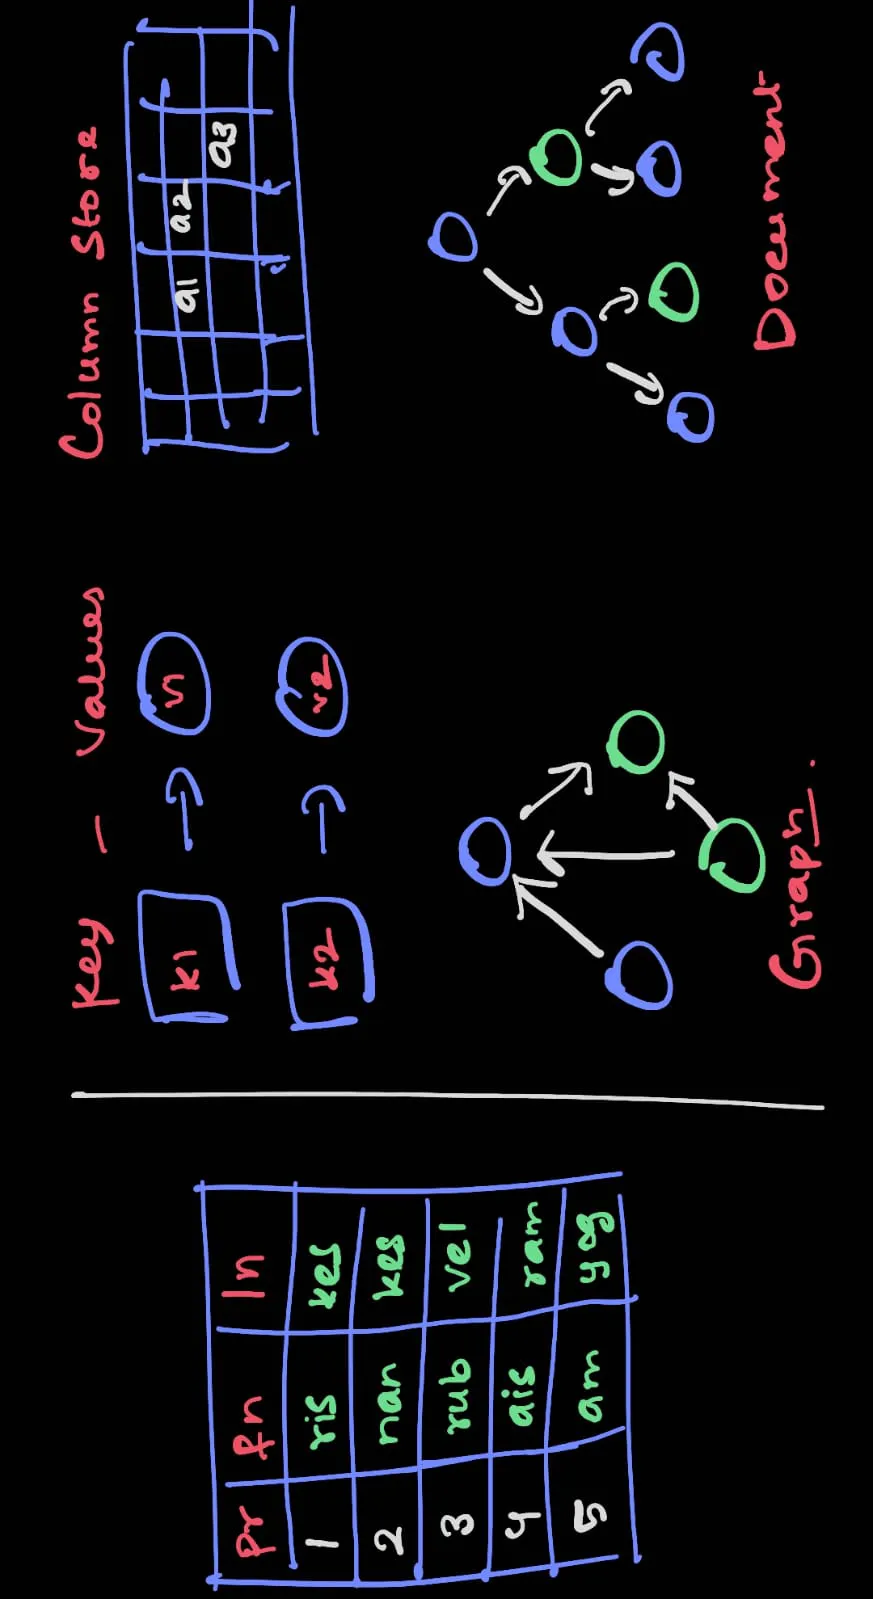 pr fn ln
1 ris kes
2 nan kes
3 rub vel
4 ais ram
5 am yog
Key – Values
K1 v1
K2 v2
Column Store
a1 a2
a3
Graph.
Document